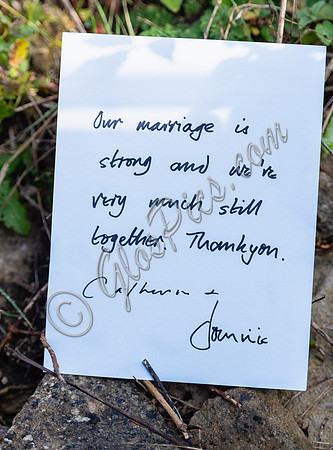 Our marriage is
strong and we're
very much still
together. Thankyou.
Catherine +
Dominic
© GlosPics.com